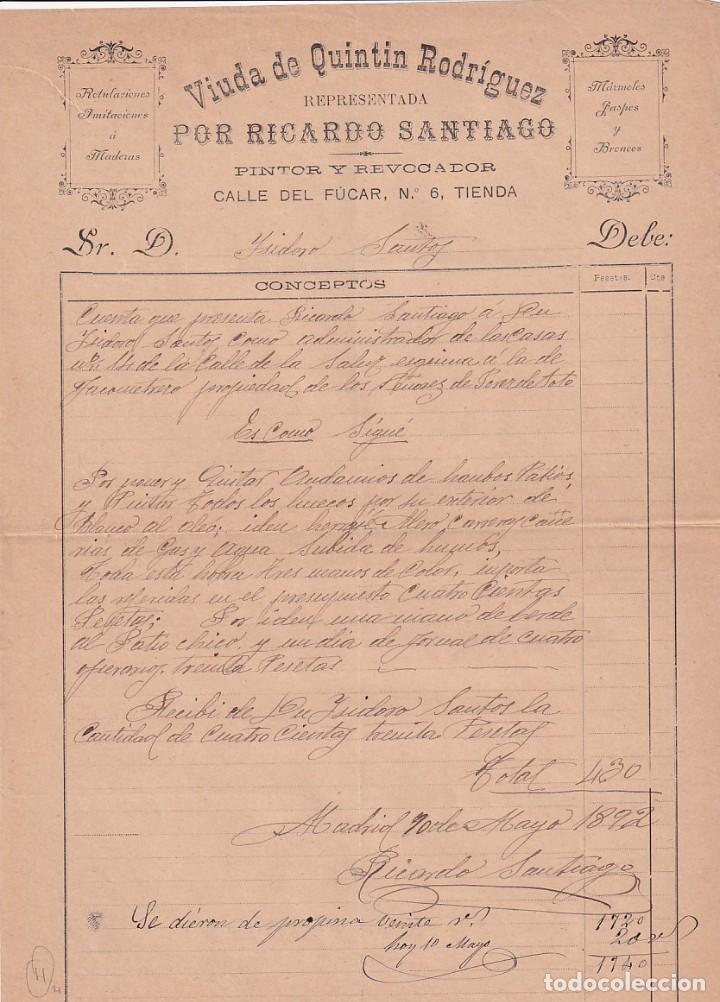 Viuda de Quintin Rodríguez
REPRESENTADA
POR RICARDO SANTIAGO
PINTOR Y REVOCADOR
CALLE DEL FÚCAR, N.º 6, TIENDA
Rotulaciones
Imitaciones
á
Maderas
Mármoles
Jaspes
y
Bronces
Sr. D. Isidoro Santos Debe:
CONCEPTOS Pesetas. Cts
Cuenta que presenta Ricardo Santiago á Dn
Ysidoro Santos como administrador de las casas
de la Calle de la Salud esquina á la de
Jacometrezo propiedad de los de Perez de Soto
Es Como Sigué
Por poner y Quitar Andamios de hambos Patios,
y Pintar Todos los huecos por su exterior de
blanco al oleo; iden Alero Carreras y Cañe
rias de Gas y Agua subida de humos,
Toda está hobra tres manos de Color, importa
las referidas en el presupuesto Cuatro Cientas
Pesetas; Por iden una mano de berde
al Patio chico y un dia de Jornal de cuatro
operarios. treinta Pesetas
Recibi de Dn Ysidoro Santos la
Cantidad de Cuatro Cientas treinta Pesetas
Total 430
Madrid 10 de Mayo 1892
Ricardo Santiago
Se dieron de propina veinte r.s 1720
hoy 10 Mayo 20
1740